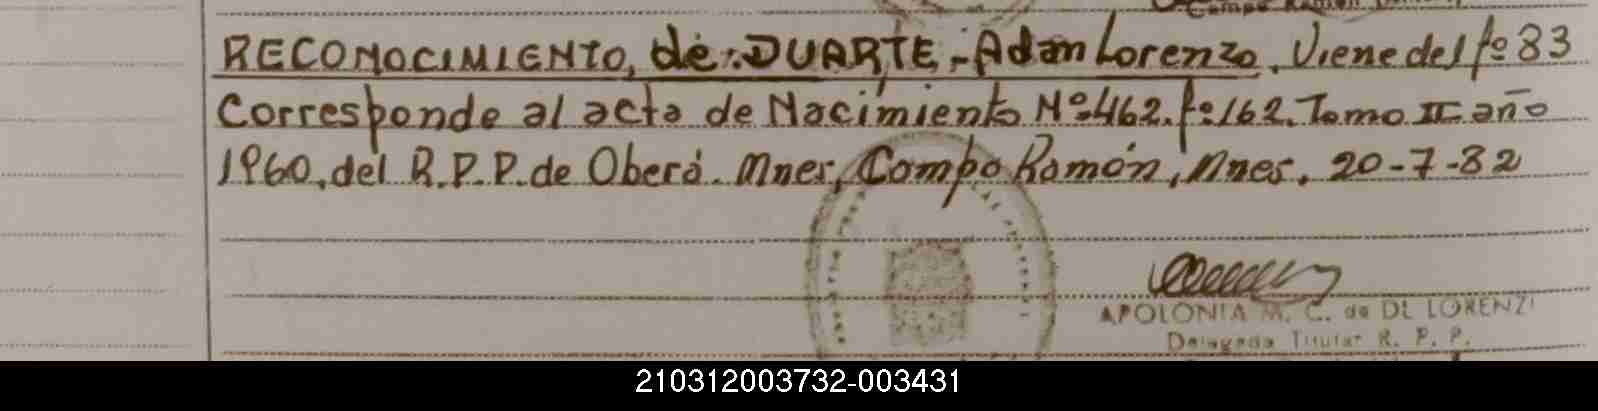 Campo Ramón
RECONOCIMIENTO, de:.DUARTE.- Adan Lorenzo. Viene del fº 83
Corresponde al acta de Nacimiento Nº.462.fº.162.Tomo II año
1960, del R.P.P. de Oberá. Mnes, Campo Ramón, Mnes, 20-7-82
APOLONIA M. C. de DE LORENZI
Delegada Titular R. P. P.
210312003732-003431